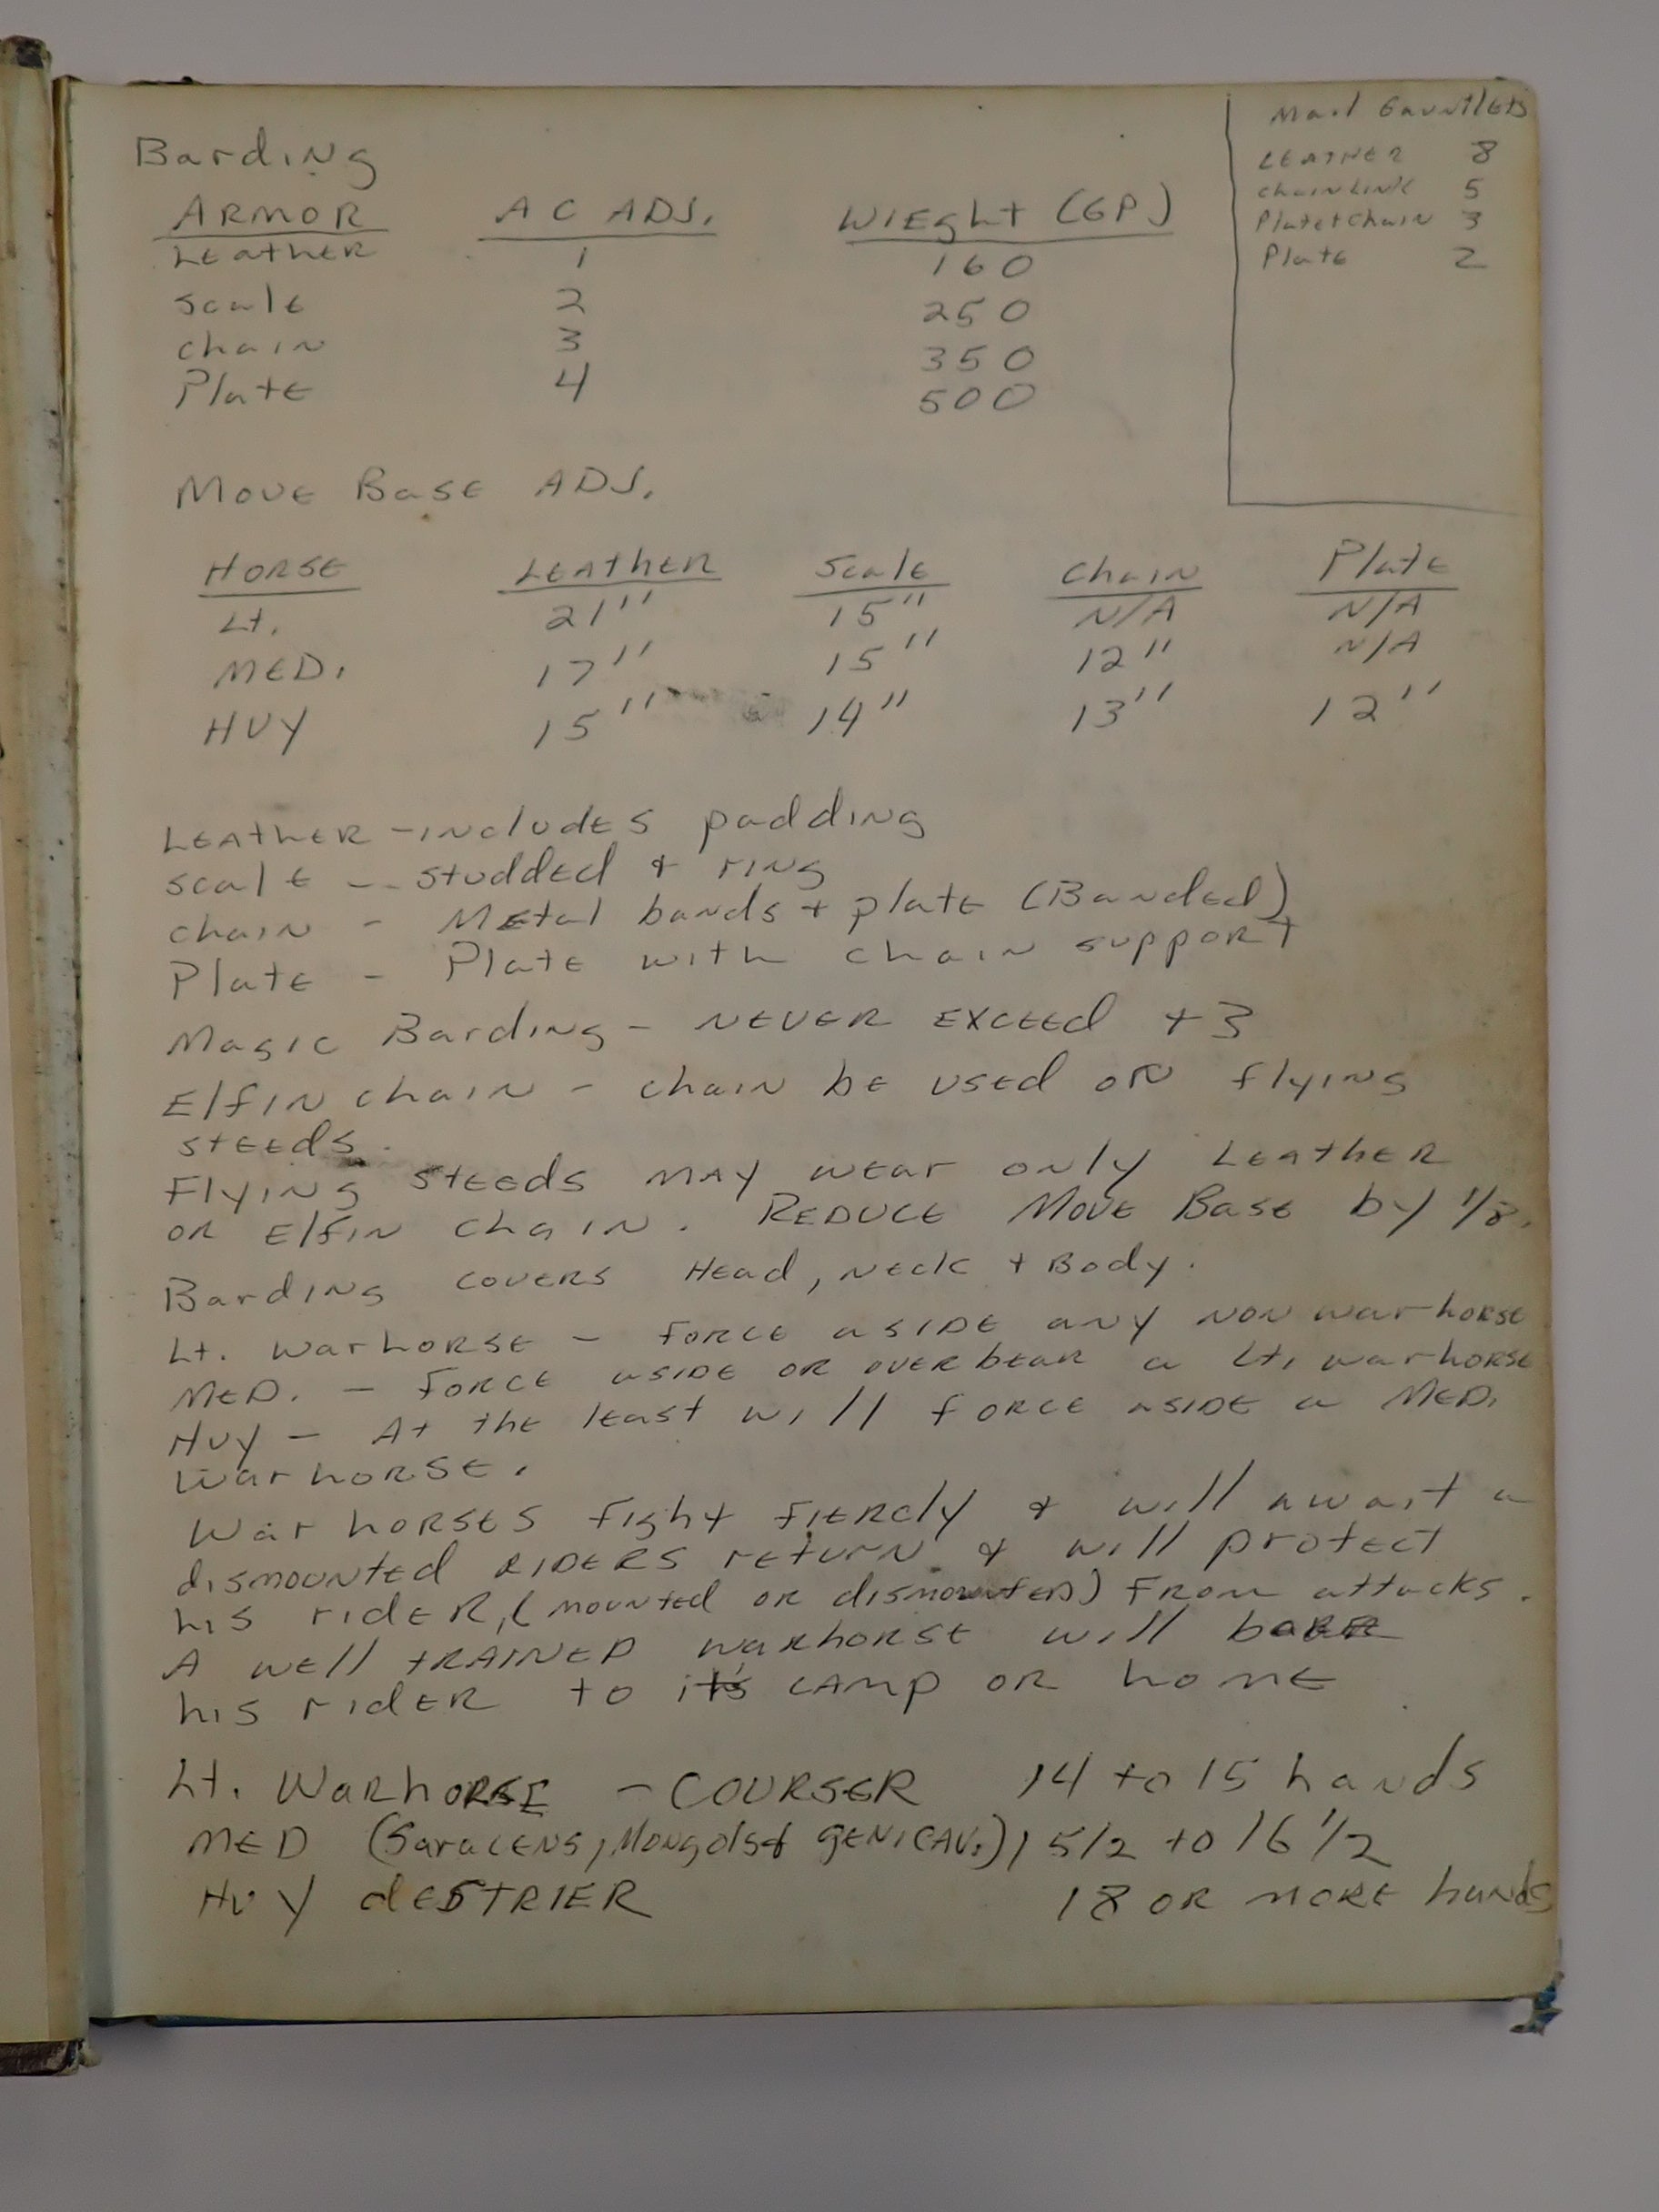 Barding
ARMOR AC ADJ. WIEght (GP)
LEathER 1 160
scalE 2 250
chain 3 350
PlatE 4 500
Mail GauntlEts
LEATHER 8
chainLink 5
Plate+Chain 3
Plate 2
MovE BasE ADJ.
HORSE LEATHER ScalE Chain Plate
Lt. 21" 15" N/A N/A
MED. 17" 15" 12" N/A
HVY 15" 14" 13" 12"
LEAthER - includEs padding
scalE - studded & ring
chain - MEtal bands + platE (Banded)
PlatE - PlatE with chain suppORT
Magic Barding - NEVER EXCEEd +3
Elfin chain - chain bE usEd on flying
stEEds.
Flying StEEds MAY wEar only LEAthER
OR Elfin chain. REDUCE MovE BasE by 1/3.
Barding covERs HEad, NEck + Body.
Lt. WarhORSE - FORCE asidE any non warhORSE
MED. - FORCE asidE OR ovERbEaR a Lt. warhorsE
HVY - At thE lEast will fORCE asidE a MED.
WarhORSE.
WarhORSEs fight FiERcly & will await a
dismountEd RIDERS rEturn & will protEct
his ridER, (mountEd OR dismountED) FROM attacks.
A wEll tRAINED waRhorsE will bEaR
his ridER to its CAMP OR homE
Lt. WaRhORSE - COURSER 14 to 15 hands
MED (SaracENS, Mongols & GEN. CAV.) 15 1/2 to 16 1/2
HVY dESTRIER 18 OR morE hands